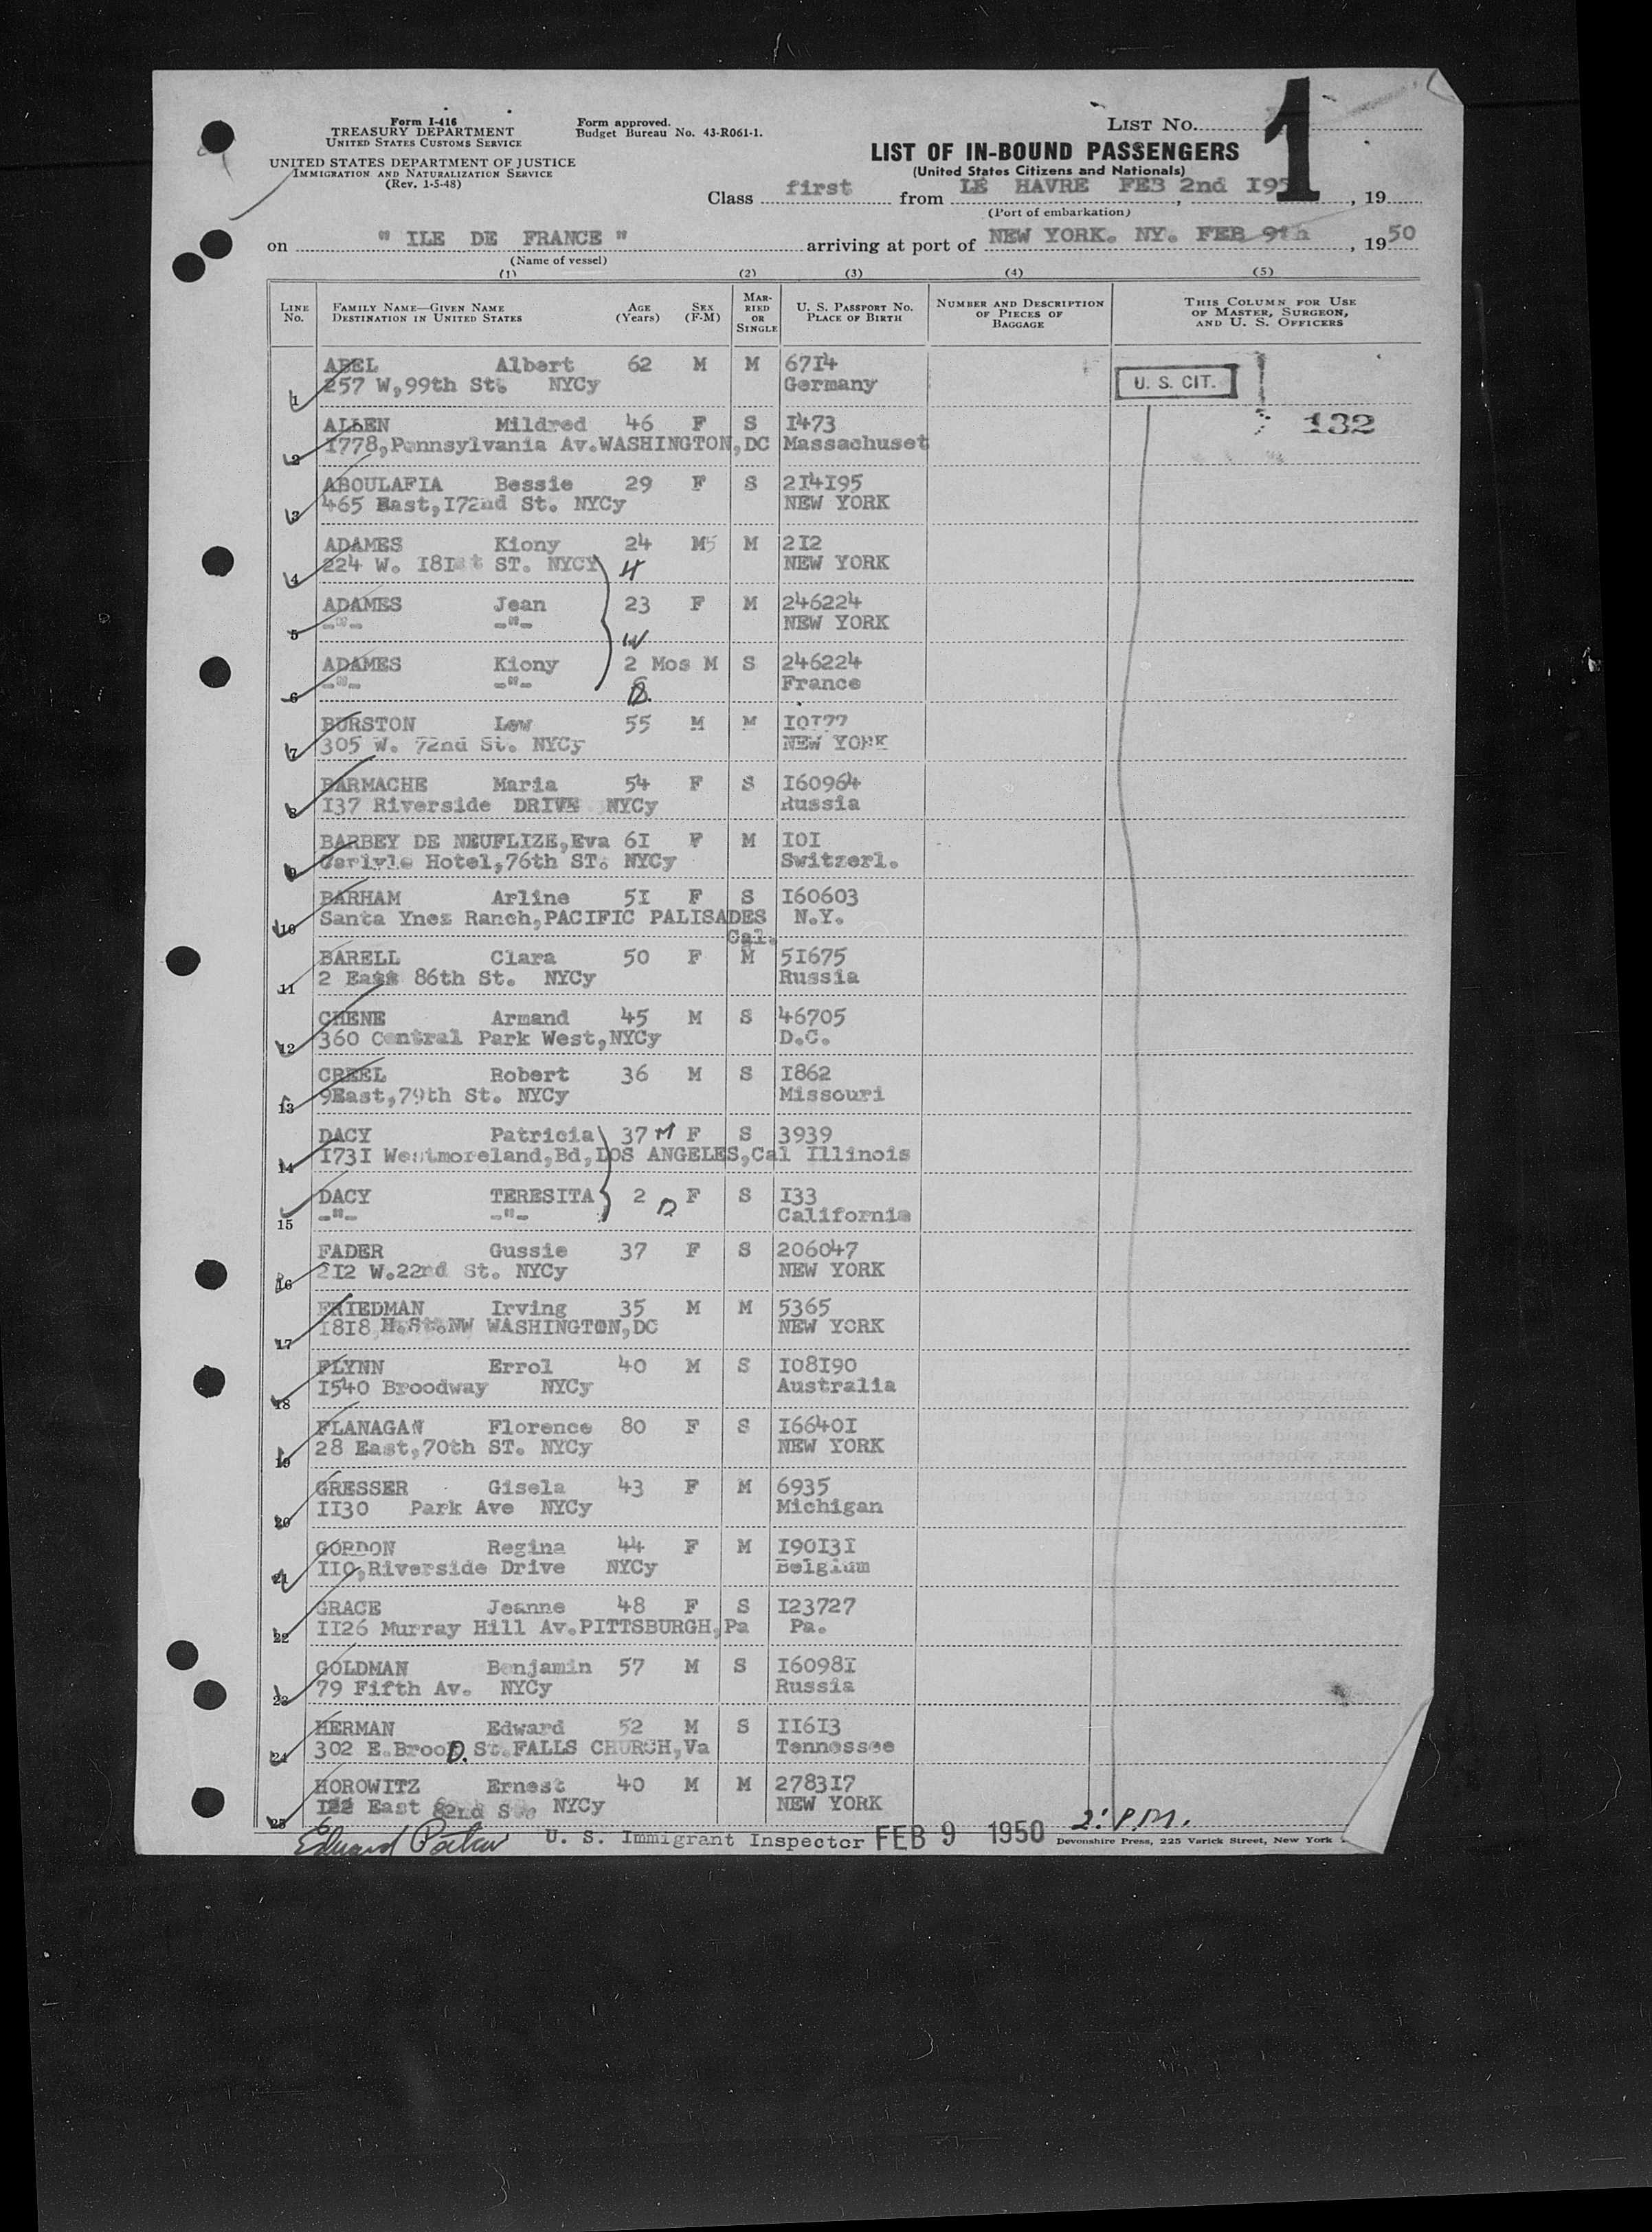 Form I-416
TREASURY DEPARTMENT
UNITED STATES CUSTOMS SERVICE
UNITED STATES DEPARTMENT OF JUSTICE
IMMIGRATION AND NATURALIZATION SERVICE
(Rev. 1-5-48)
Form approved.
Budget Bureau No. 43-R061-1.
LIST No. 1
LIST OF IN-BOUND PASSENGERS
(United States Citizens and Nationals)
Class first from LE HAVRE FEB 2nd 195 , 19
(Port of embarkation)
on " ILE DE FRANCE " arriving at port of NEW YORK. NY. FEB 9th , 1950
(Name of vessel)
(1) (2) (3) (4) (5)
LINE No. FAMILY NAME—GIVEN NAME DESTINATION IN UNITED STATES AGE (Years) SEX (F-M) MARRIED OR SINGLE U. S. PASSPORT No. PLACE OF BIRTH NUMBER AND DESCRIPTION OF PIECES OF BAGGAGE THIS COLUMN FOR USE OF MASTER, SURGEON, AND U. S. OFFICERS
1 ABEL Albert 62 M M 6714
257 W,99th St. NYCy Germany U. S. CIT.
2 ALLEN Mildred 46 F S I473 132
I778,Pennsylvania Av.WASHINGTON,DC Massachuset
3 ABOULAFIA Bessie 29 F S 2I4I95
465 East,I72nd St. NYCy NEW YORK
4 ADAMES Kiony 24 M5 M 2I2
224 W. I8Ist ST. NYCY H NEW YORK
5 ADAMES Jean 23 F M 246224
-"- -"- W NEW YORK
6 ADAMES Kiony 2 Mos M S 246224
-"- -"- France
7 BURSTON Lew 55 M M I0I77
305 W. 72nd St. NYCy NEW YORK
8 BARMACHE Maria 54 F S I60964
I37 Riverside DRIVE NYCy Russia
9 BARBEY DE NEUFLIZE,Eva 6I F M I0I
Carlyle Hotel,76th ST. NYCy Switzerl.
10 BARHAM Arline 5I F S I60603
Santa Ynez Ranch,PACIFIC PALISADES N.Y.
Cal.
11 BARELL Clara 50 F M 5I675
2 East 86th St. NYCy Russia
12 CHENE Armand 45 M S 46705
360 Central Park West,NYCy D.C.
13 CREEL Robert 36 M S I862
9East,79th St. NYCy Missouri
14 DACY Patricia 37 M F S 3939
I73I Westmoreland,Bd,LOS ANGELES,Cal Illinois
15 DACY TERESITA 2 D F S I33
-"- -"- California
16 FADER Gussie 37 F S 206047
2I2 W.22nd St. NYCy NEW YORK
17 FRIEDMAN Irving 35 M M 5365
I8I8,H.St.NW WASHINGTON,DC NEW YORK
18 FLYNN Errol 40 M S I08I90
I540 Broodway NYCy Australia
19 FLANAGAN Florence 80 F S I6640I
28 East,70th ST. NYCy NEW YORK
20 GRESSER Gisela 43 F M 6935
II30 Park Ave NYCy Michigan
21 GORDON Regina 44 F M I90I3I
II0,Riverside Drive NYCy Belgium
22 GRACE Jeanne 48 F S I23727
II26 Murray Hill Av.PITTSBURGH,Pa Pa.
23 GOLDMAN Benjamin 57 M S I6098I
79 Fifth Av. NYCy Russia
24 HERMAN Edward 52 M S II6I3
302 E.BrooD. St.FALLS CHURCH,Va Tennessee
25 HOROWITZ Ernest 40 M M 2783I7
I22 East 82nd NYCy NEW YORK
2:P.M.
Edward U. S. Immigrant Inspector FEB 9 1950 Devonshire Press, 225 Varick Street, New York